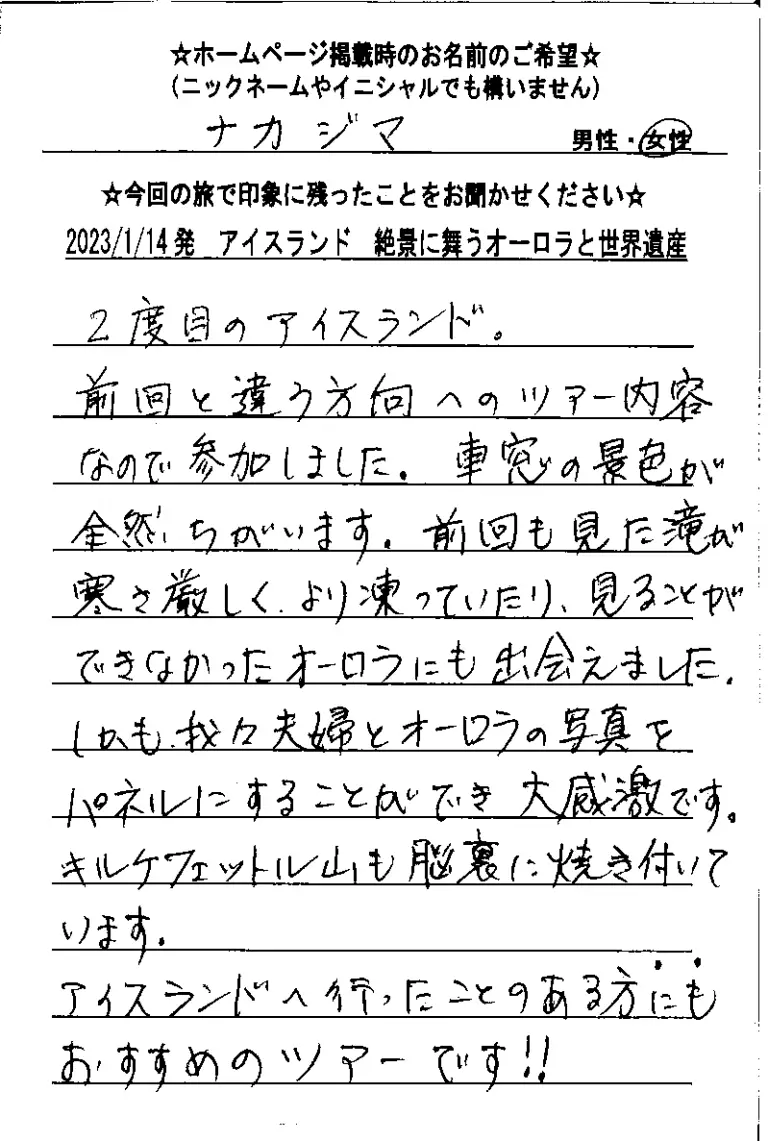 ☆ホームページ掲載時のお名前のご希望☆
(ニックネームやイニシャルでも構いません)
ナカジマ 男性・女性
☆今回の旅で印象に残ったことをお聞かせください☆
2023/1/14発 アイスランド 絶景に舞うオーロラと世界遺産
2度目のアイスランド。
前回と違う方向へのツアー内容
なので参加しました。車窓の景色が
全然ちがいます。前回も見た滝が
寒さ厳しく、より凍っていたり、見ることが
できなかったオーロラにも出会えました。
しかも、我々夫婦とオーロラの写真を
パネルにすることができ大感激です。
キルケフェットル山も脳裏に焼き付いて
います。
アイスランドへ行ったことのある方にも
おすすめのツアーです!!